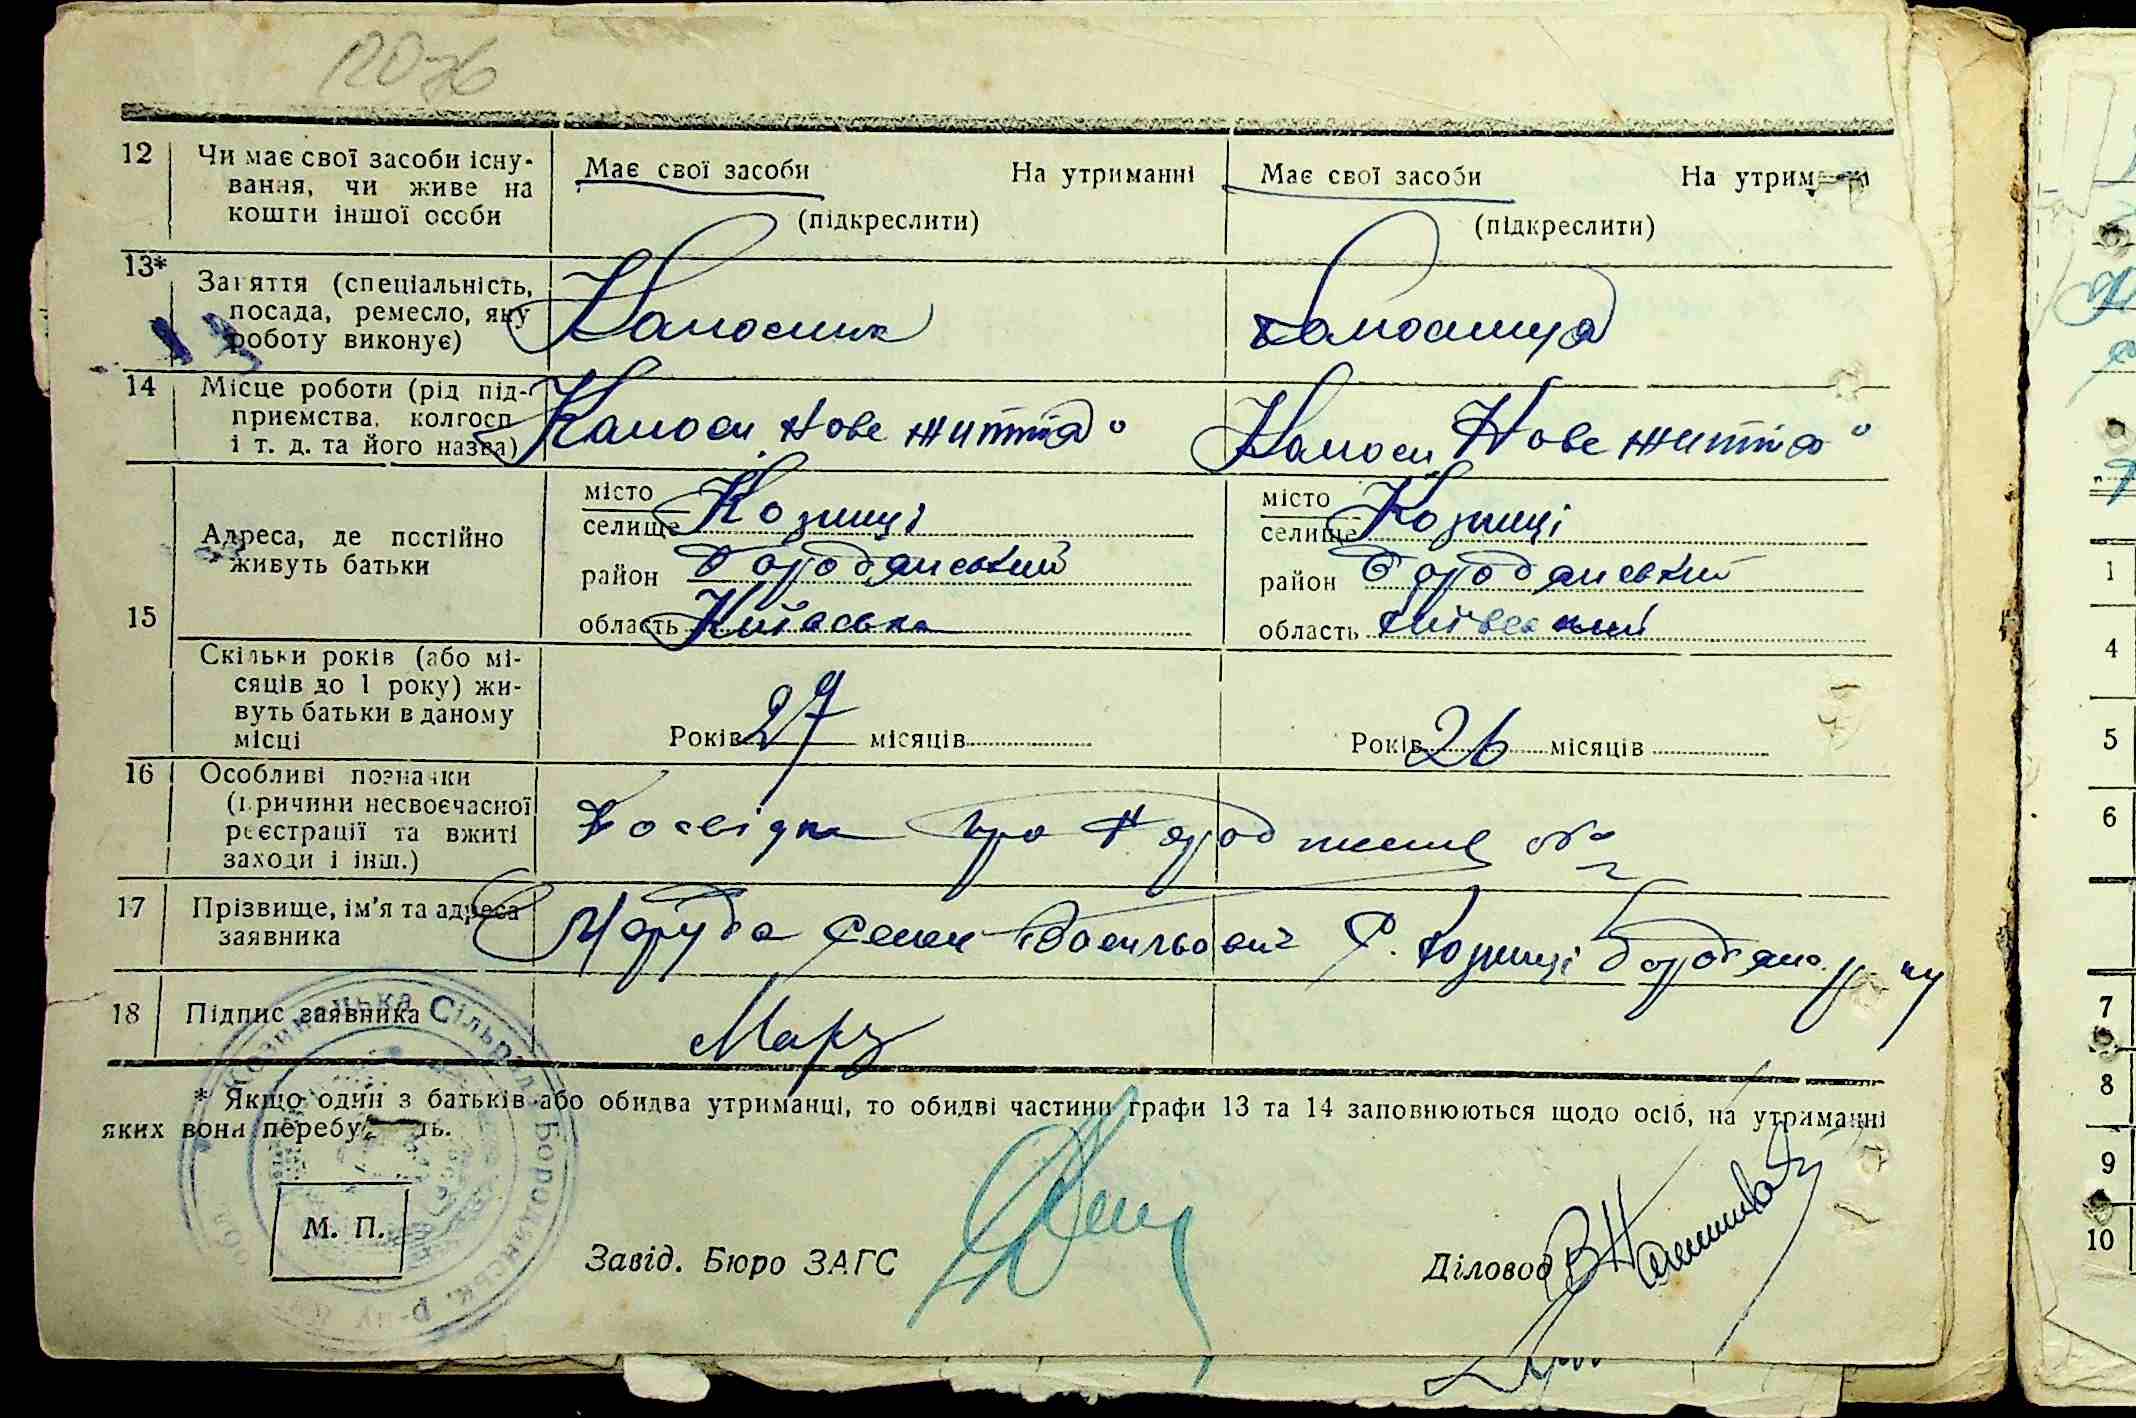 2076
12 Чи має свої засоби існу- Має свої засоби На утриманні Має свої засоби На утрим
вання, чи живе на
кошти іншої особи (підкреслити) (підкреслити)
13* Заняття (спеціальність,
посада, ремесло, яку Колгосник Колгосниця
роботу виконує)
14 Місце роботи (рід під-
приємства, колгосп Колгосп „Нове життя" Колгосп „Нове життя"
і т. д. та його назва)
15 Адреса, де постійно
живуть батьки
місто місто
селище Козинці селище Козинці
район Бородянський район Бородянський
область Київська область Київський
Скільки років (або мі-
сяців до 1 року) жи-
вуть батьки в даному
місці Років 27 місяців Років 26 місяців
16 Особливі позначки
(причини несвоєчасної
реєстрації та вжиті Довідка про народження № 2
заходи і інш.)
17 Прізвище, ім'я та адреса
заявника Василькович С. Козинці Бородянс. р-ну
18 Підпис заявника
* Якщо один з батьків або обидва утриманці, то обидві частини графи 13 та 14 заповнюються щодо осіб, на утриманні
яких вони перебу ь.
Козинцька Сільрада Бородянськ. р-ну
М. П.
Завід. Бюро ЗАГС
Діловод
1
4
5
6
7
8
9
10